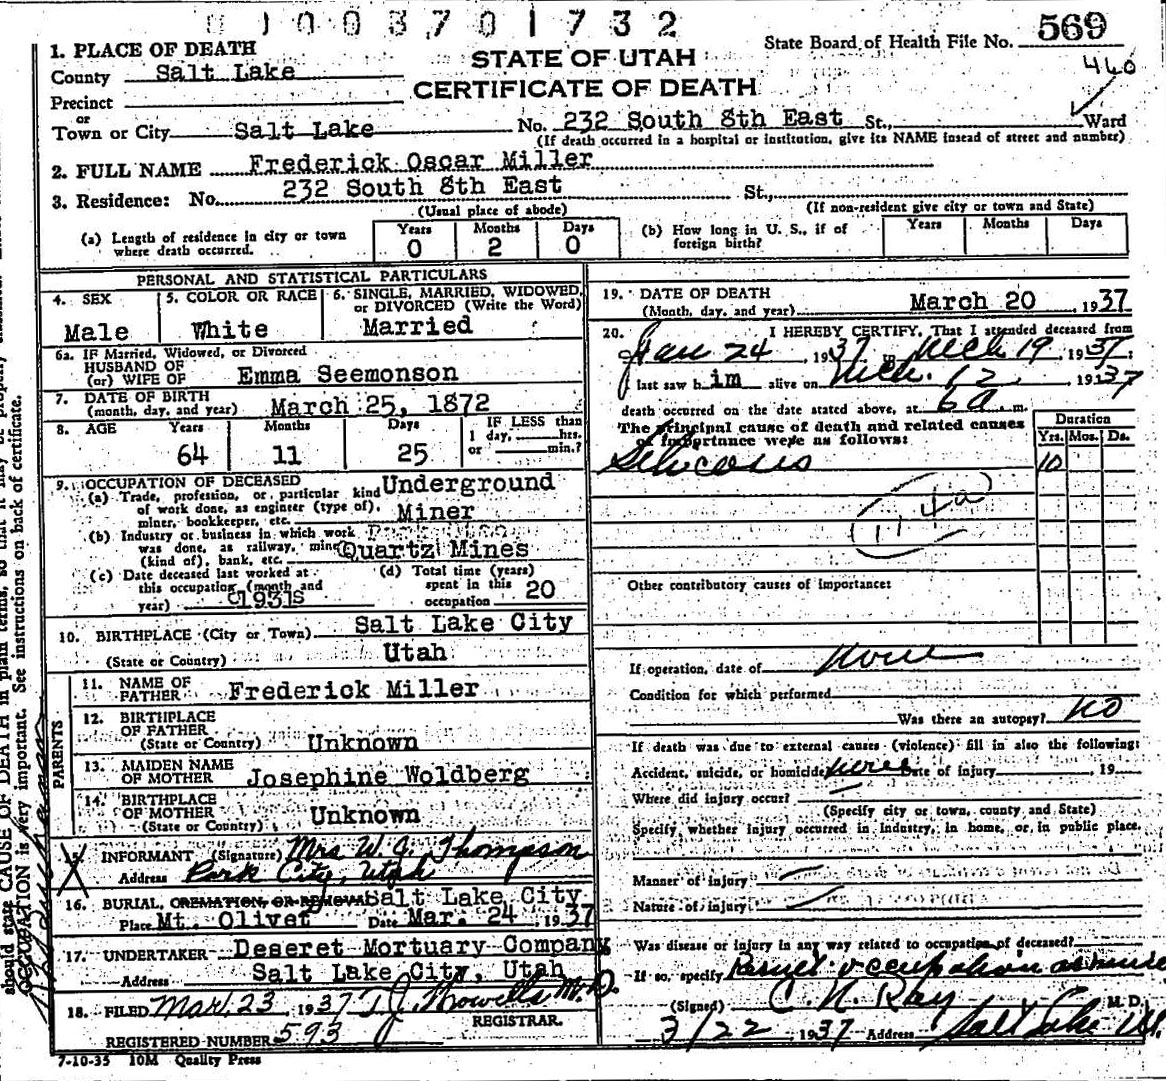 0 1 0 0 3 7 0 1 7 3 2
State Board of Health File No. 569
460
STATE OF UTAH
CERTIFICATE OF DEATH
1. PLACE OF DEATH
County Salt Lake
Precinct
or
Town or City Salt Lake No. 232 South 8th East St., Ward
(If death occurred in a hospital or institution, give its NAME insead of street and number)
2. FULL NAME Frederick Oscar Miller
3. Residence: No. 232 South 8th East St.,
(Usual place of abode) (If non-resident give city or town and State)
(a) Length of residence in city or town where death occurred. Years 0 Months 2 Days 0
(b) How long in U. S., if of foreign birth? Years Months Days
PERSONAL AND STATISTICAL PARTICULARS
4. SEX Male
5. COLOR OR RACE White
6. SINGLE, MARRIED, WIDOWED, or DIVORCED (Write the Word) Married
6a. IF Married, Widowed, or Divorced
HUSBAND OF
(or) WIFE OF Emma Seemonson
7. DATE OF BIRTH
(month, day, and year) March 25, 1872
8. AGE Years 64 Months 11 Days 25 IF LESS than 1 day, hrs. or min.?
9. OCCUPATION OF DECEASED
(a) Trade, profession, or particular kind of work done, as engineer (type of), miner, bookkeeper, etc. Underground Miner
(b) Industry or business in which work was done, as railway, mine (kind of), bank, etc. Quartz Mines
(c) Date deceased last worked at this occupation (month and year) 1931
(d) Total time (years) spent in this occupation 20
10. BIRTHPLACE (City or Town) Salt Lake City
(State or Country) Utah
PARENTS
11. NAME OF FATHER Frederick Miller
12. BIRTHPLACE OF FATHER
(State or Country) Unknown
13. MAIDEN NAME OF MOTHER Josephine Woldberg
14. BIRTHPLACE OF MOTHER
(State or Country) Unknown
15. INFORMANT (Signature) Mrs W. J. Thompson
Address Park City, Utah
16. BURIAL, CREMATION, OR REMOVAL Salt Lake City
Place Mt. Olivet Date Mar. 24, 1937
17. UNDERTAKER Deseret Mortuary Company
Address Salt Lake City, Utah
18. FILED Mar. 23, 1937 T. J. Howells M.D.
REGISTRAR.
REGISTERED NUMBER 593
7-10-35 10M Quality Press
19. DATE OF DEATH
(Month, day, and year) March 20, 1937
20. I HEREBY CERTIFY, That I attended deceased from
Jan 24, 1937 to Mch 19, 1937;
I last saw him alive on Mch. 12, 1937
death occurred on the date stated above, at 6 a. m.
The principal cause of death and related causes of importance were as follows:
Duration
Yrs. Mos. Ds.
Silicosis 10
114a
Other contributory causes of importance:
If operation, date of None
Condition for which performed
Was there an autopsy? No
If death was due to external causes (violence) fill in also the following:
Accident, suicide, or homicide none Date of injury , 19
Where did injury occur?
(Specify city or town, county and State)
Specify whether injury occurred in industry, in home, or in public place.
Manner of injury
Nature of injury
Was disease or injury in any way related to occupation of deceased?
If so, specify occupation as miner
(Signed) C. N. Ray M. D.
3/22, 1937 Address Salt Lake Ut.
should state CAUSE OF DEATH in plain terms, so that it may be properly
OCCUPATION is very important. See instructions on back of certificate.